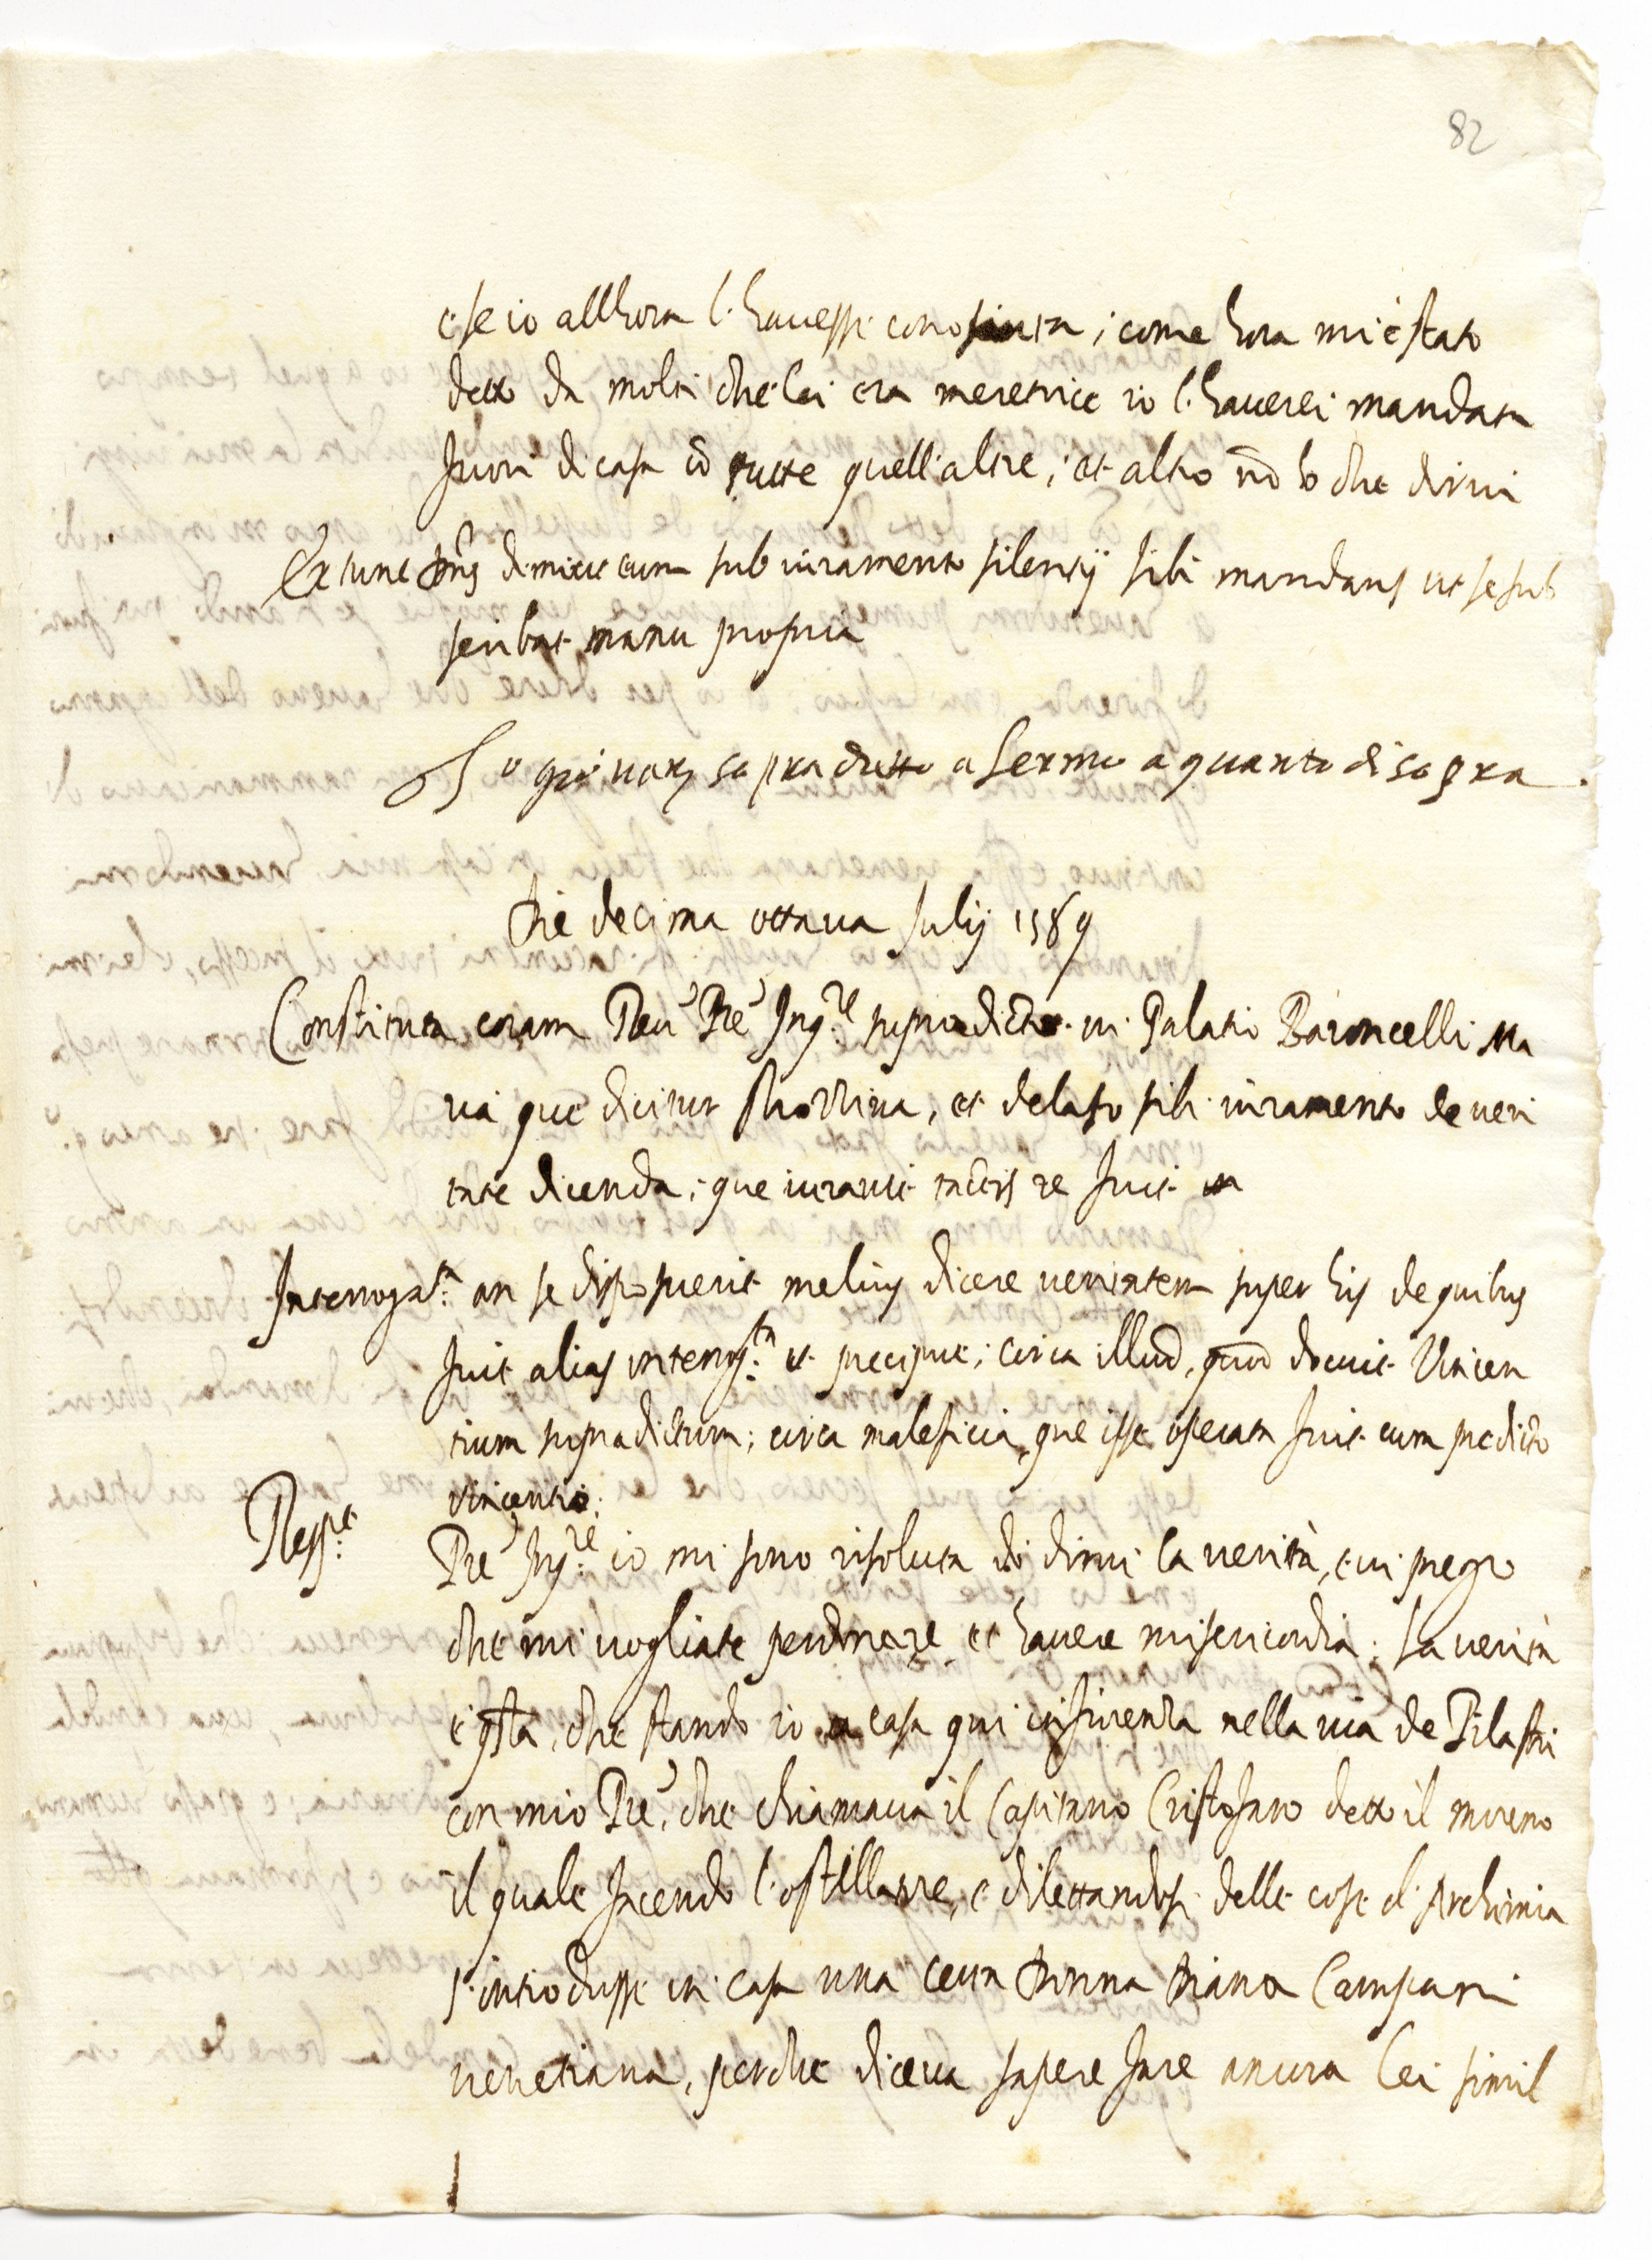 82
e se io allhora l'havessi conosciuta, come hora mi è stato
detto da molti che lei era meretrice io l'haverei mandata
fuori di casa cō tutte quell'altre; et altro nō so che dirvi
Ex tunc dimisit eum sub iuramento silentij sibi mandans ut se sub
scribat manu propria
Io sopradutto afermo a quanto di sopra
Die decima ottava Julij 1589
Constituta coram Reu Pre Inq.re supradicto in Palatio Baroncelli
via que dicitur , et delato sibi iuramento de veri
tate dicenda, que iuravit tactis re fuit
Interrogat.a an se disposuerit melius dicere veritatem super his de quibus
fuit alias interrog.ta et precipue; circa illud, quod docuit Vincen
tium supradictum; circa maleficia, que ipse operata fuit cum predicto
Vincentio.
Resp.t Pre Inq.re io mi sono risoluta di dirvi la verità, e vi prego
che mi vogliate perdonare, et havere misericordia. La verità
è qsta, che stando io a casa qui in firenza nella via de Pilastri
con mio Pre, che chiamava il Capitano Cristofano detto il moreno
il quale facendo l'ostillatore, e dilettandosi delle cose d'Archimia
s'introdusse in casa una certa Donna Diana
venetiana, perche diceva sapere fare ancora lei simil